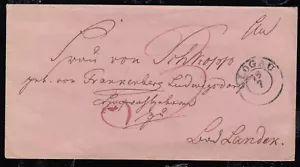 An
Frau von Schkopp
geb. von Frankenberg Ludwigsdorf
zu
Bad Landeck.
GLOGAU
19
7